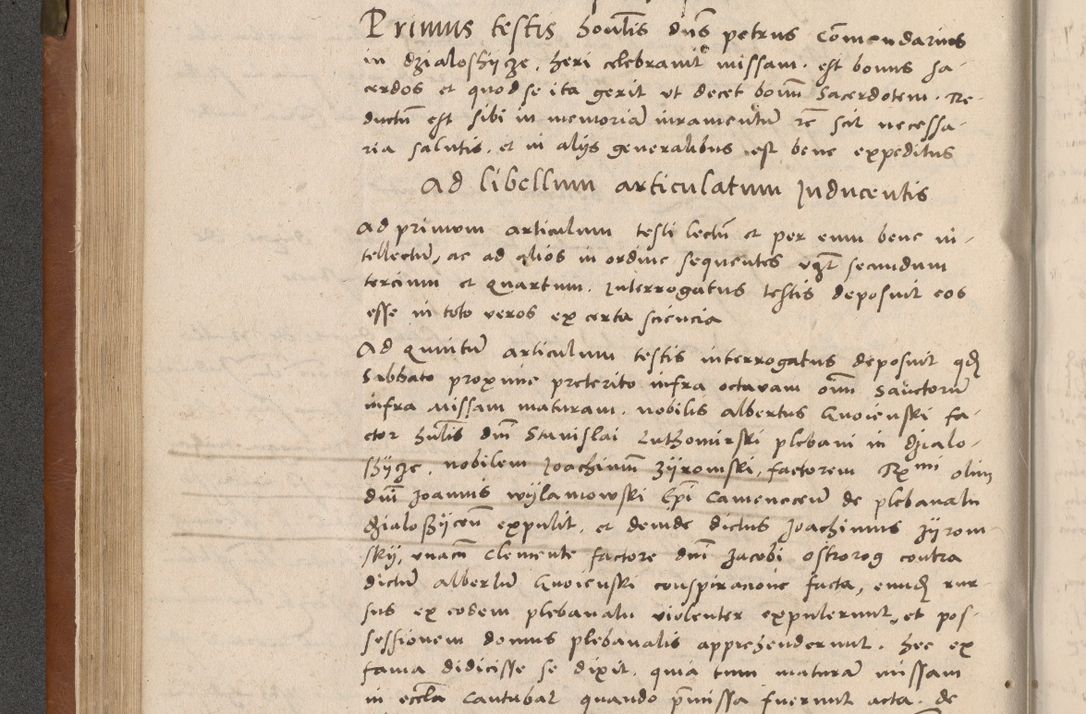 Primus testis honbilis dns petrus Comendarius
in dzialoshycze, heri celebravit missam, est bonus sa-
cerdos et quod se ita gerit ut decet bonum Sacerdotem. Re-
ductum est sibi in memoriam iuramentum rem scit necessa-
ria salutis, et in alijs generalibus est bene expeditus
Ad libellum articulatum Inducentis
Ad primum articulum testi lectum et per eum bene in-
tellectum, ac ad alios in ordine sequentes vzt secundum
tercium et Quartum. Interrogatus testis deposuit eos
esse in toto veros ex certa sciencia
Ad Quintum articulum testis interrogatus deposuit qd
Sabbato proxime preterito infra octavam oim Sanctorum
infra Missam maturam. nobilis albertus Gnoienski fa-
ctor hubilis dni Stanislai Luthomirski plebani in dzialo-
shycze, nobilem Joachimum Zyromski, factorem Rmi olim
dni Joannis wylamowski Epi Camenecen de plebanatu
dzialoshycen expulit, et deinde dictus Joachimus Zyrom
sky, unacum Clemente factore dni Jacobi ostrorog contra
dictum albertum Gnoienski conspiracione facta, eundem rur-
sus ex eodem plebanatu violenter expulerunt, et pos-
sessionem domus plebanalis apprehenderunt. hec ex
fama didicisse se dixit, quia tum maturam missam
in eccla Cantabat quando pmissa fuerunt acta. de